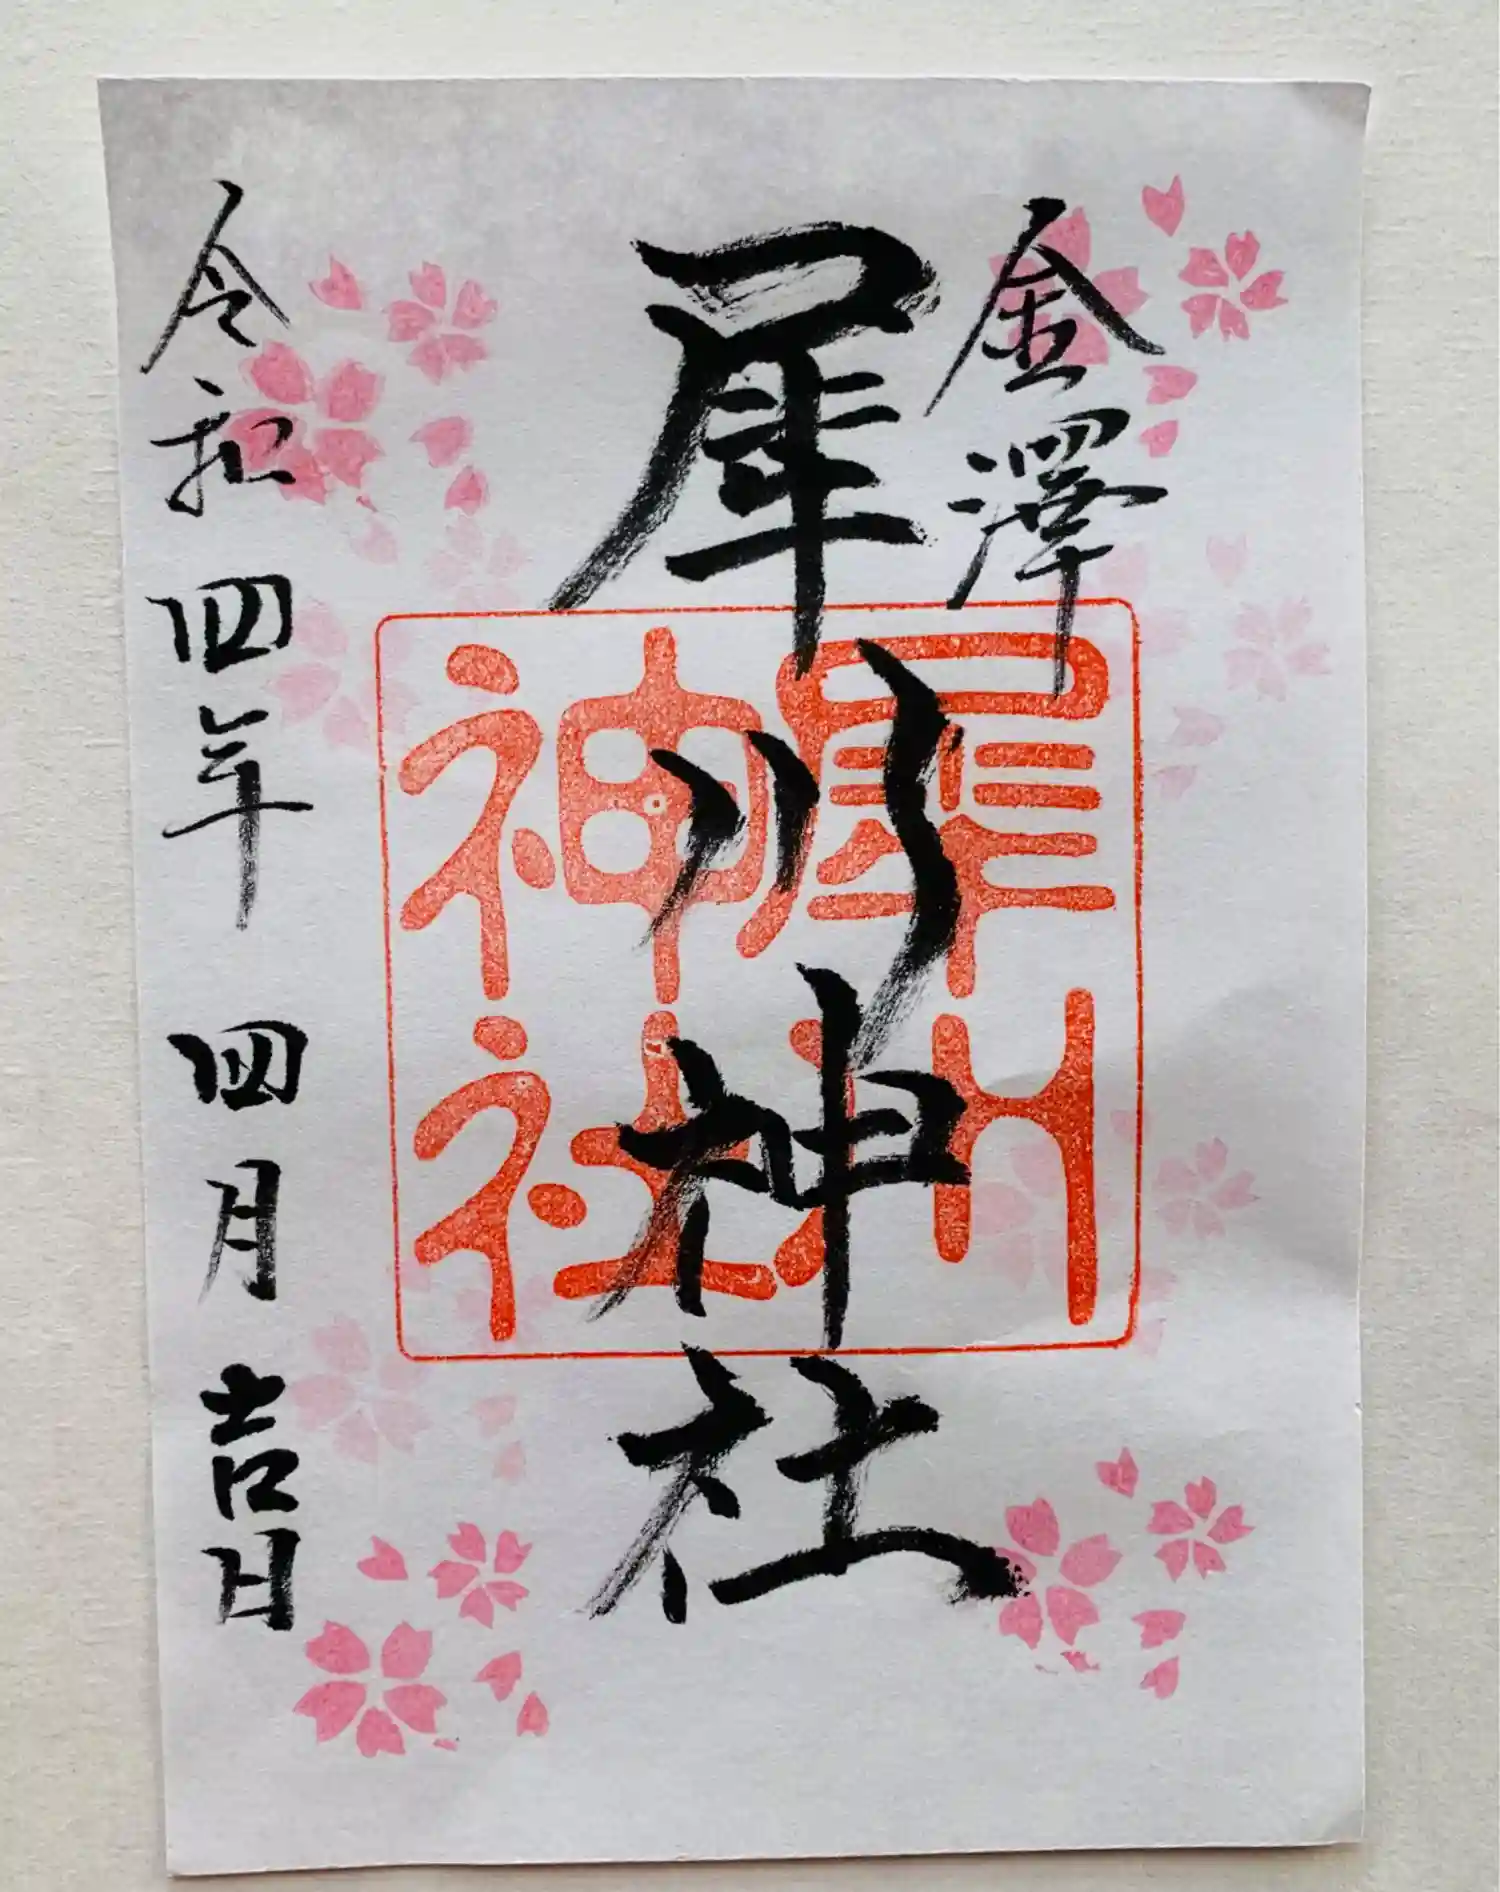 金澤
犀川神社
犀川
神社
令和四年四月吉日